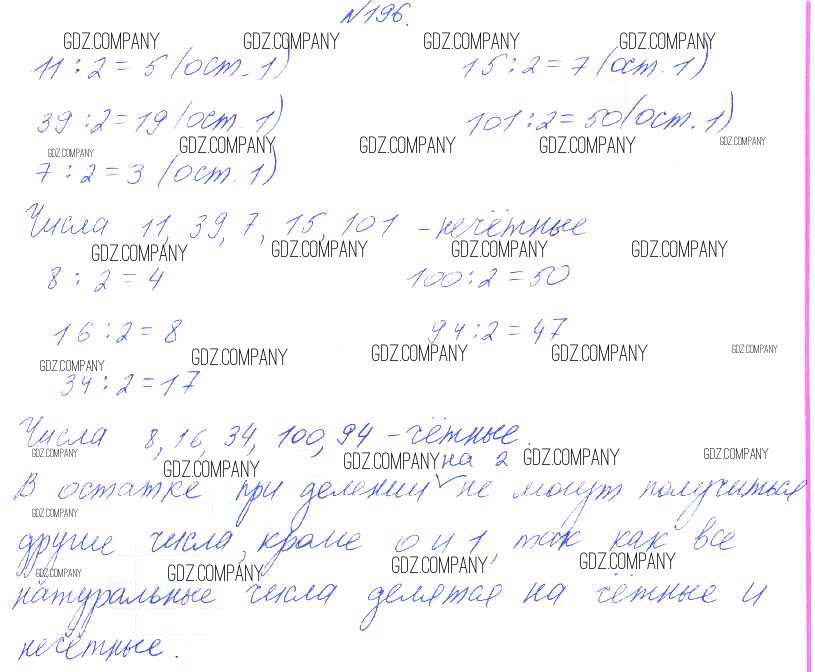 №196.
GDZ.COMPANY GDZ.COMPANY GDZ.COMPANY GDZ.COMPANY
11 : 2 = 5 (ост. 1) 15 : 2 = 7 (ост. 1)
39 : 2 = 19 (ост. 1) 101 : 2 = 50 (ост. 1)
GDZ.COMPANY GDZ.COMPANY GDZ.COMPANY GDZ.COMPANY GDZ.COMPANY
7 : 2 = 3 (ост. 1)
Числа 11, 39, 7, 15, 101 - нечётные
GDZ.COMPANY GDZ.COMPANY GDZ.COMPANY GDZ.COMPANY
8 : 2 = 4 100 : 2 = 50
16 : 2 = 8 94 : 2 = 47
GDZ.COMPANY GDZ.COMPANY GDZ.COMPANY GDZ.COMPANY GDZ.COMPANY
34 : 2 = 17
Числа 8, 16, 34, 100, 94 - чётные.
GDZ.COMPANY GDZ.COMPANY GDZ.COMPANY GDZ.COMPANY GDZ.COMPANY
на 2
В остатке при делении не могут получиться
GDZ.COMPANY
другие числа, кроме 0 и 1, так как все
GDZ.COMPANY GDZ.COMPANY GDZ.COMPANY GDZ.COMPANY
натуральные числа делятся на чётные и
нечётные.